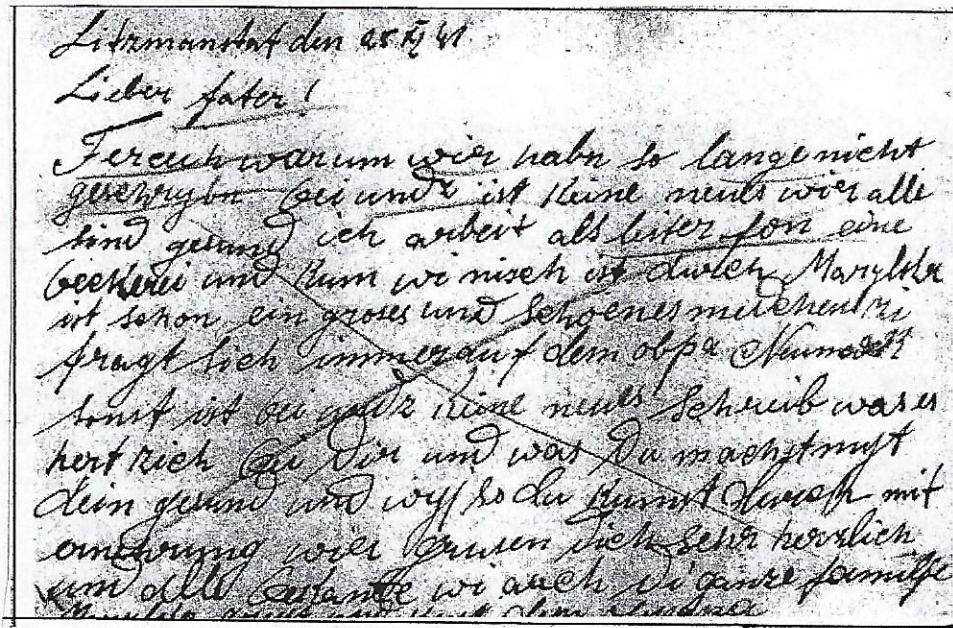 Litzmanstat den 25 XI 41
Lieber fater!
Fercich warum wir habn so lange nicht
geschrybn bei undz ist keine neues wier alle
sind gesund ich arbeit als leiter fon eine
beckerei und kum wi nisch ist durch Marylka
ist schon ein groses und schoenes medchen zi
fragt sich immer auf dem obpa
sonst ist bei undz keine neues schreib was es
hert zich bei dir und was du machst myt
dein gesund und wy so du kumst durch mit
wier grusen dich sehr herzlich
und alle bekante wi auch di ganze familje